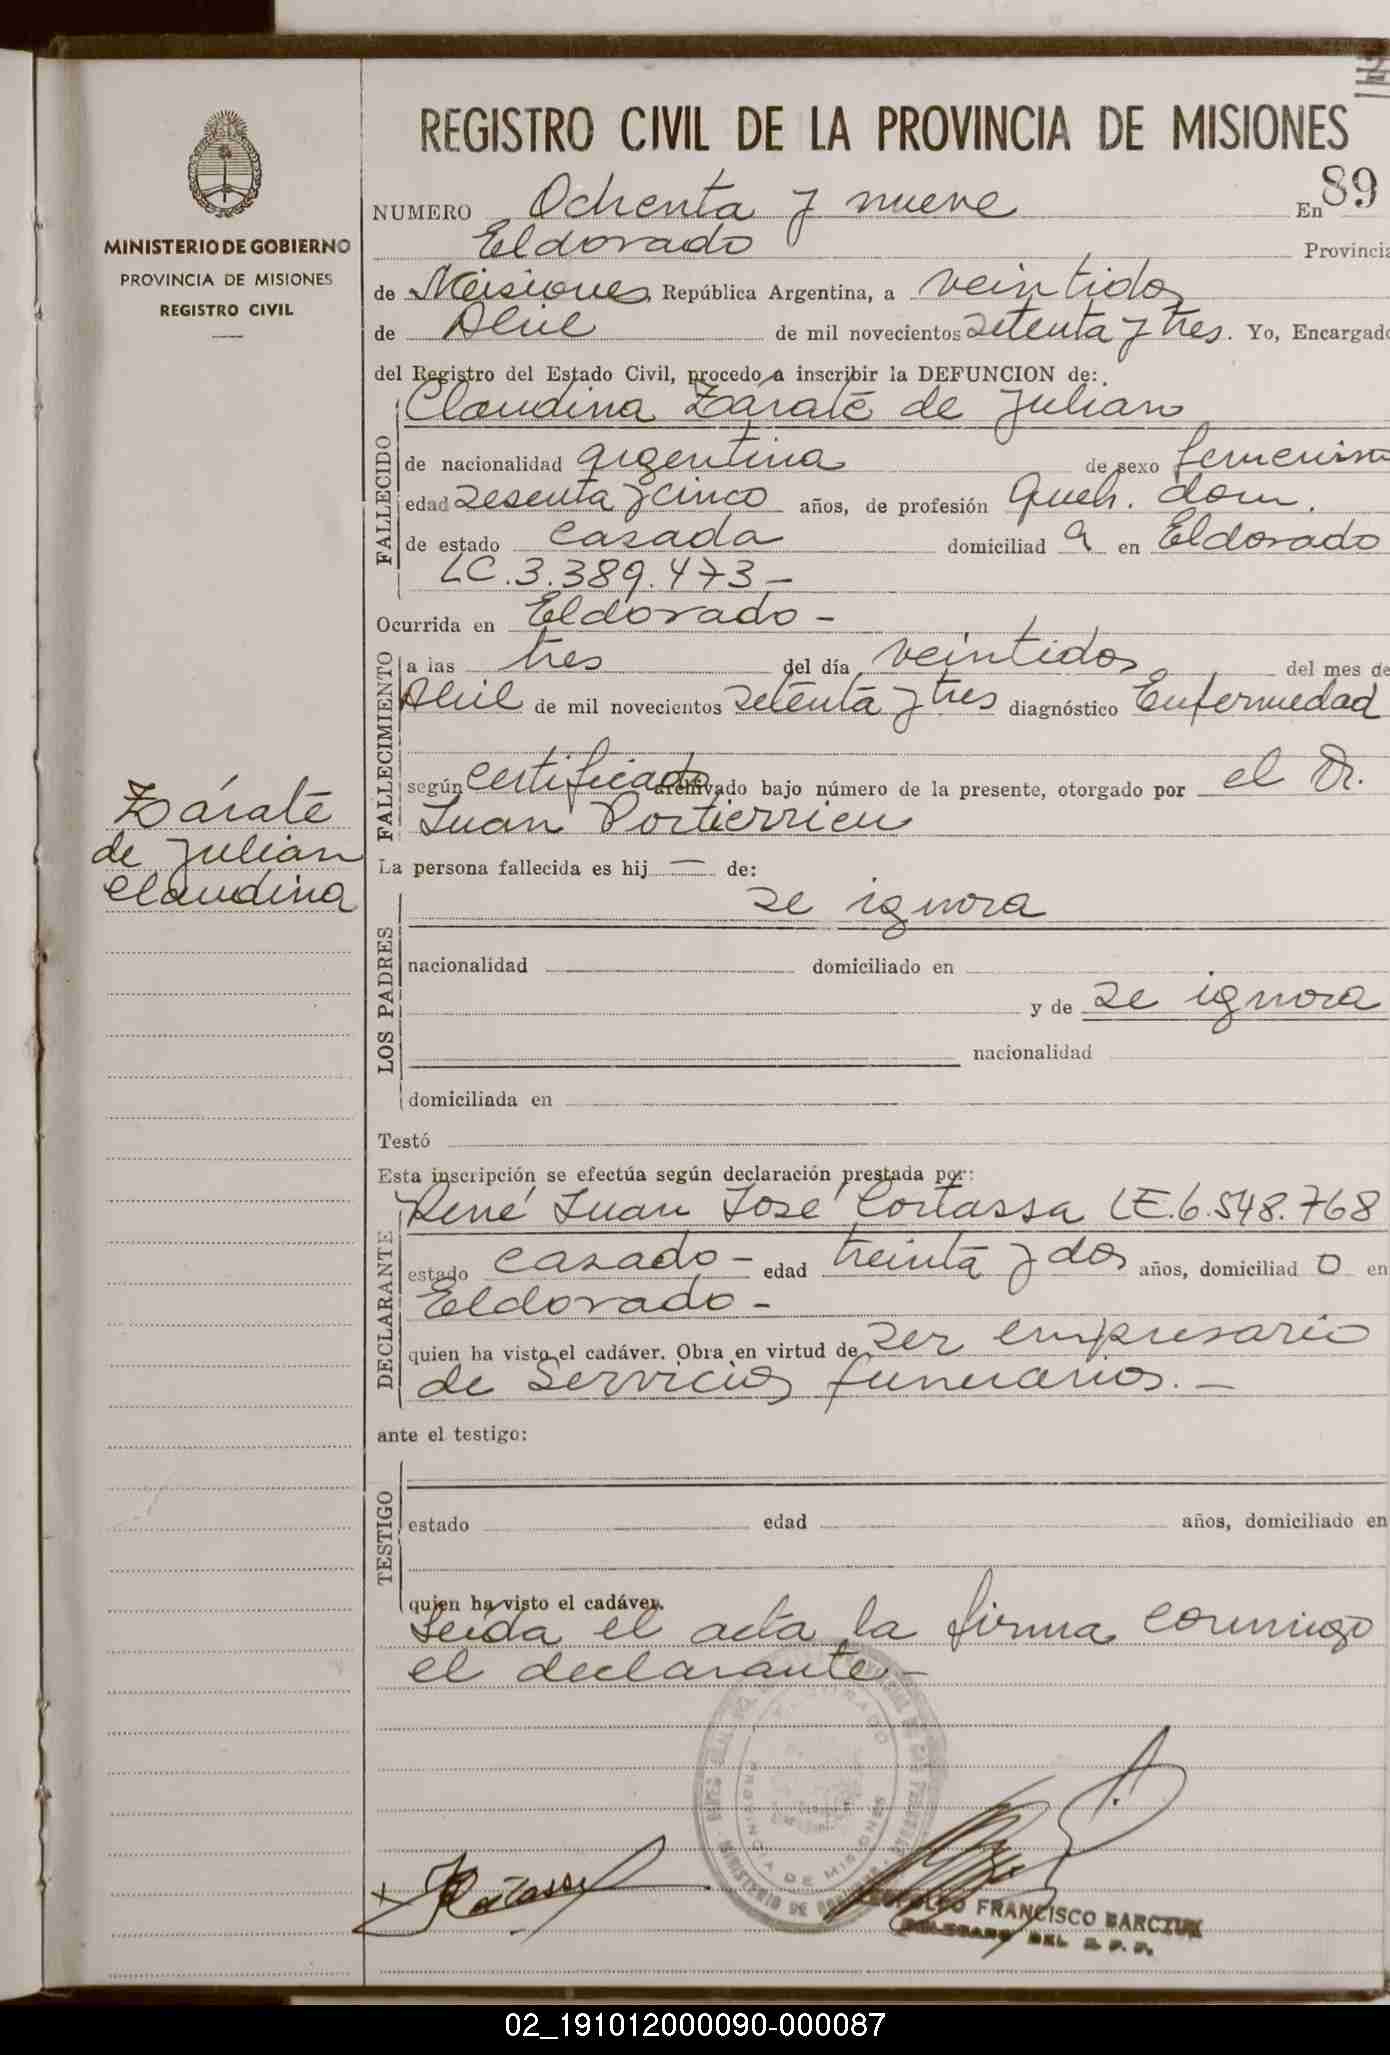 REGISTRO CIVIL DE LA PROVINCIA DE MISIONES
MINISTERIO DE GOBIERNO
PROVINCIA DE MISIONES
REGISTRO CIVIL
NUMERO Ochenta y nueve En 89
Eldorado Provincia
de Misiones República Argentina, a veintidos
de Abril de mil novecientos setenta y tres. Yo, Encargado
del Registro del Estado Civil, procedo a inscribir la DEFUNCION de:
Claudina Zárate de Julian
FALLECIDO
de nacionalidad argentina de sexo femenino
edad sesenta y cinco años, de profesión Queh. dom.
de estado casada domiciliad a en Eldorado
LC. 3.389.473 -
Ocurrida en Eldorado -
FALLECIMIENTO
a las tres del día veintidos del mes de
Abril de mil novecientos setenta y tres diagnóstico Enfermedad
según certificado archivado bajo número de la presente, otorgado por el Dr.
Juan Portierrieu
Zárate
de Julian
Claudina
La persona fallecida es hij — de:
LOS PADRES
se ignora
nacionalidad domiciliado en
y de se ignora
nacionalidad
domiciliada en
Testó
Esta inscripción se efectúa según declaración prestada por:
DECLARANTE
René Juan José Cortassa LE. 6.548.768
estado casado - edad treinta y dos años, domiciliad o en
Eldorado -
quien ha visto el cadáver. Obra en virtud de ser empresario
de servicios funerarios. -
ante el testigo:
TESTIGO
estado edad años, domiciliado en
quien ha visto el cadáver.
Leída el acta la firma conmigo
el declarante -
PROVINCIA DE MISIONES
MINISTERIO DE
FRANCISCO BARCZUK
DEL R. P. P.
02_191012000090-000087